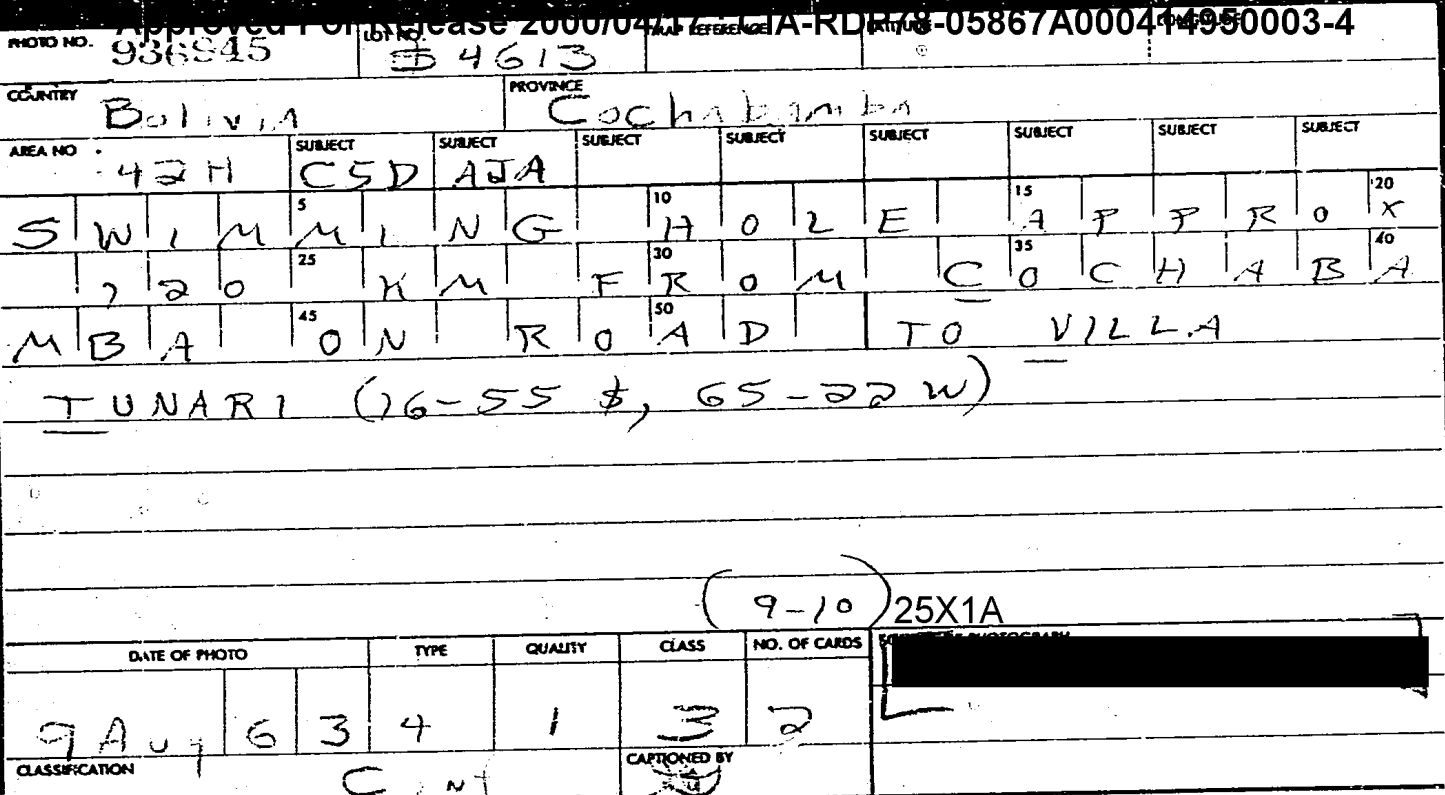 Approved For Release 2000/04/17 : CIA-RDP78-05867A000414950003-4
PHOTO NO. 936845 LOT NO. 4613 MAP REFERENCE LATITUDE LONGITUDE
COUNTRY Bolivia PROVINCE Cochabamba
AREA NO 42H SUBJECT C5D SUBJECT AJA SUBJECT SUBJECT SUBJECT SUBJECT SUBJECT SUBJECT
5 10 15 20
SWIMMING HOLE APPROX
25 30 35 40
, 20 KM FROM COCHABA
45 50
MBA ON ROAD TO VILLA
TUNARI (16-55 S, 65-22 W)
(9-10) 25X1A
DATE OF PHOTO TYPE QUALITY CLASS NO. OF CARDS
9 Aug 63 4 1 3 2
CLASSIFICATION CAPTIONED BY